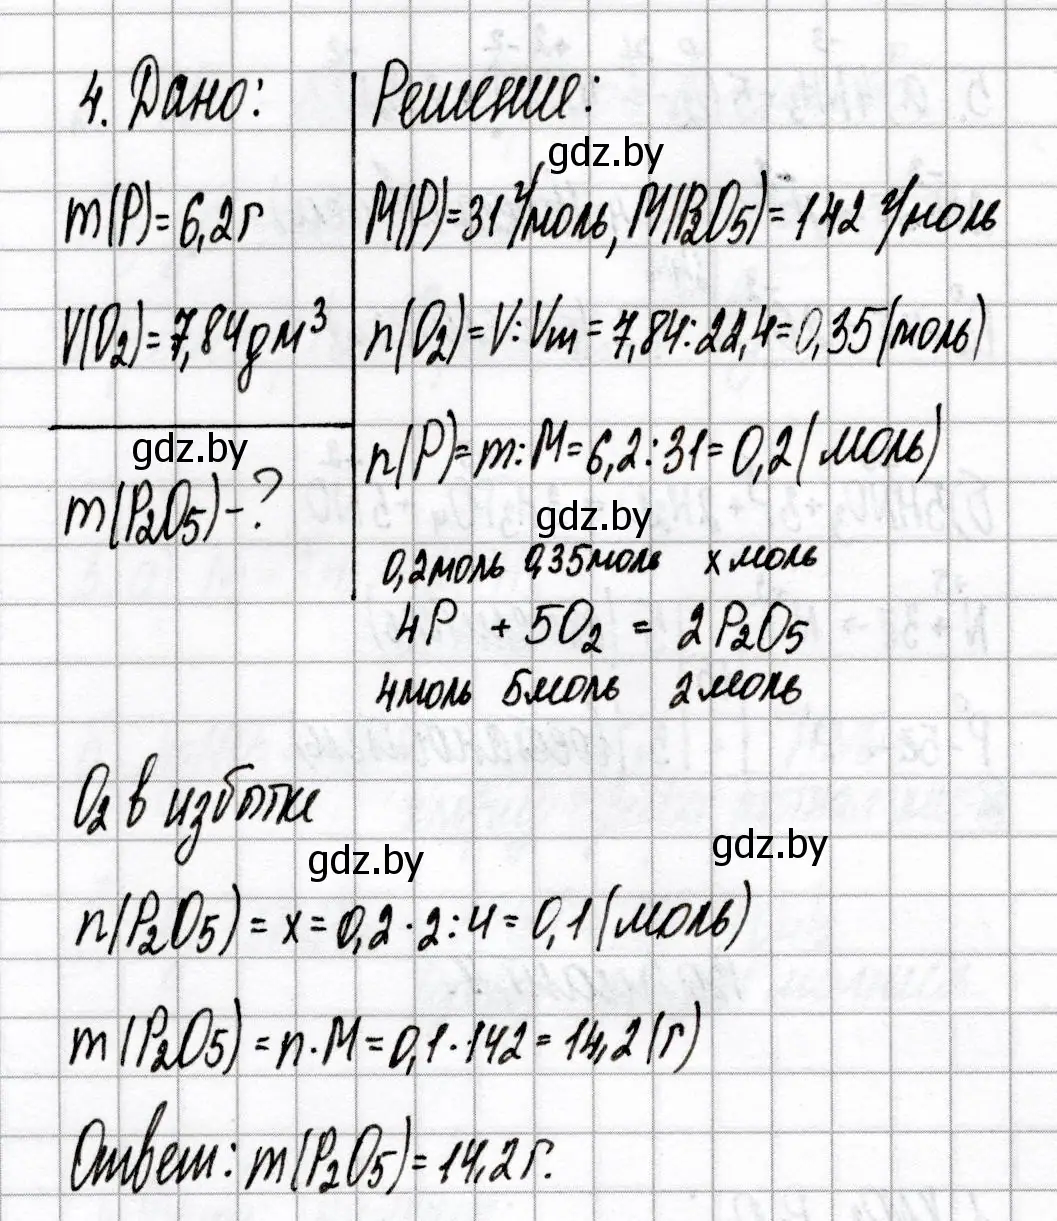 4. Дано:
m(P)=6,2г
V(O₂)=7,84дм³
gdz.by
m(P₂O₅)-?
Решение:
gdz.by
M(P)=31г/моль, M(P₂O₅)=142 г/моль
n(O₂)=V:Vm=7,84:22,4=0,35(моль)
n(P)=m:M=6,2:31=0,2(моль)
gdz.by
0,2моль 0,35моль x моль
4P + 5O₂ = 2P₂O₅
4моль 5моль 2моль
O₂ в избытке
gdz.by
gdz.by
n(P₂O₅)=x=0,2·2:4=0,1(моль)
m(P₂O₅)=n·M=0,1·142=14,2(г)
Ответ: m(P₂O₅)=14,2г.